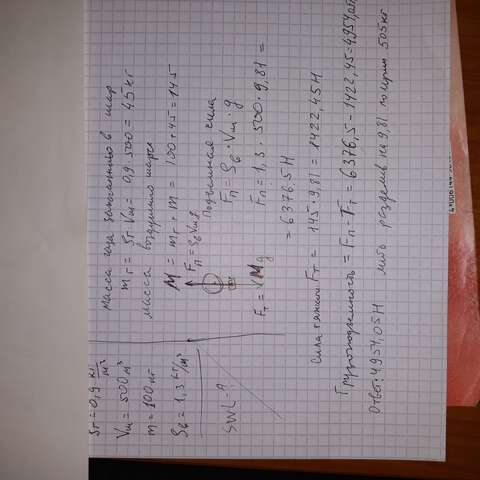 ρг = 0,9 кг/м³
Vш = 500 м³
m = 100 кг
ρв = 1,3 кг/м³
SWL - ?
масса газа в шар
mг = ρг Vш = 0,9 · 500 = 45 кг
масса воздушного шара
M = mг + m = 100 + 45 = 145
Fп = ρв Vш g
Подъемная сила
Fп = ρв · Vш · g
Fт = Mg
Fп = 1,3 · 500 · 9,81 =
= 6376,5 Н
Сила тяжести Fт = 145 · 9,81 = 1422,45 Н
Грузоподъемность = Fп - Fт = 6376,5 - 1422,45 = 4954,05
Ответ: 4954,05 Н разделив на 9,81 получим 505 кг